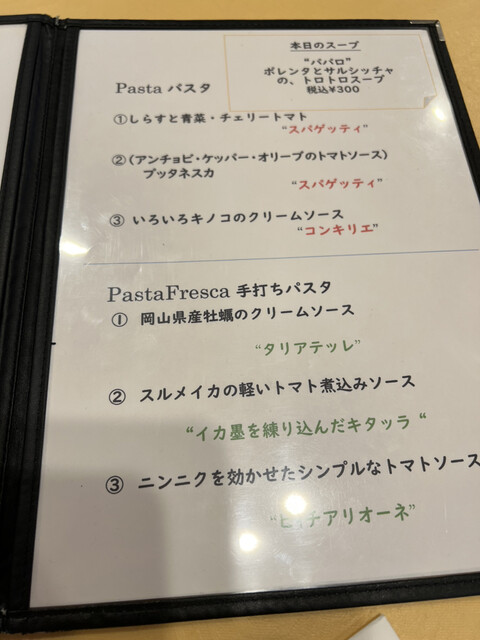 本日のスープ
“パパロ”
ポレンタとサルシッチャ
の、トロトロスープ
税込¥300
Pasta パスタ
①しらすと青菜・チェリートマト
“スパゲッティ”
②(アンチョビ・ケッパー・オリーブのトマトソース)
プッタネスカ
“スパゲッティ”
③ いろいろキノコのクリームソース
“コンキリエ”
PastaFresca 手打ちパスタ
① 岡山県産牡蠣のクリームソース
“タリアテッレ”
② スルメイカの軽いトマト煮込みソース
“イカ墨を練り込んだキタッラ“
③ ニンニクを効かせたシンプルなトマトソース
“ピチアリオーネ”